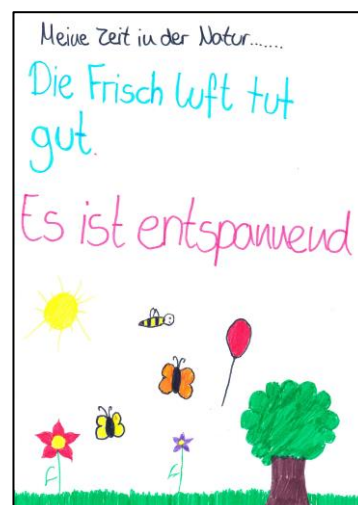 Meine Zeit in der Natur.......
Die Frisch luft tut
gut.
Es ist entspannend